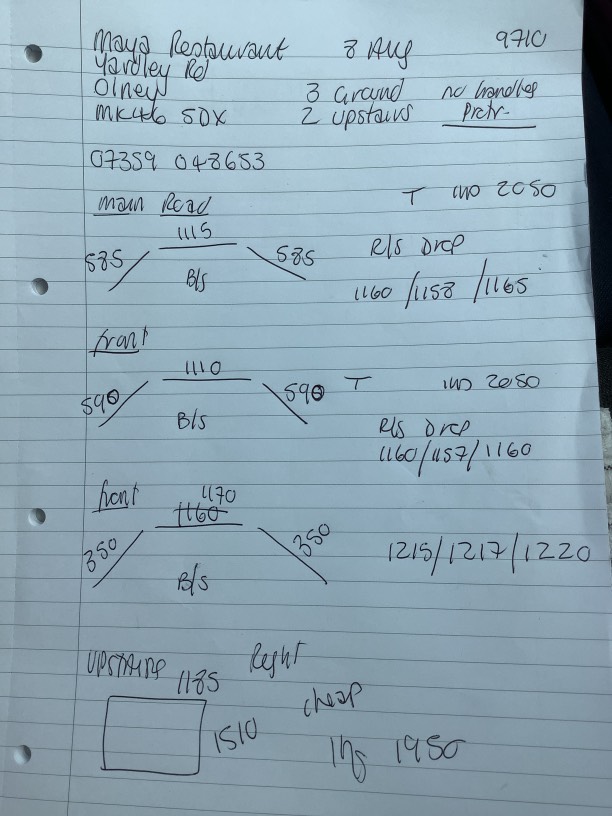 Maya Restaurant 8 Aug 9710
Yardley Rd
Olney 3 Ground no handles
MK46 5DX 2 upstairs
07359 048653
Main Road T 2050
1115
585 585 R/s Drop
B/s 1160 / 1158 / 1165
front
1110
590 590 T 2050
B/s R/s Drop
1160/1157/1160
front 1170
1160
350 350 1215/1217/1220
B/s
upstairs Right
1185 cheap
1510 1950